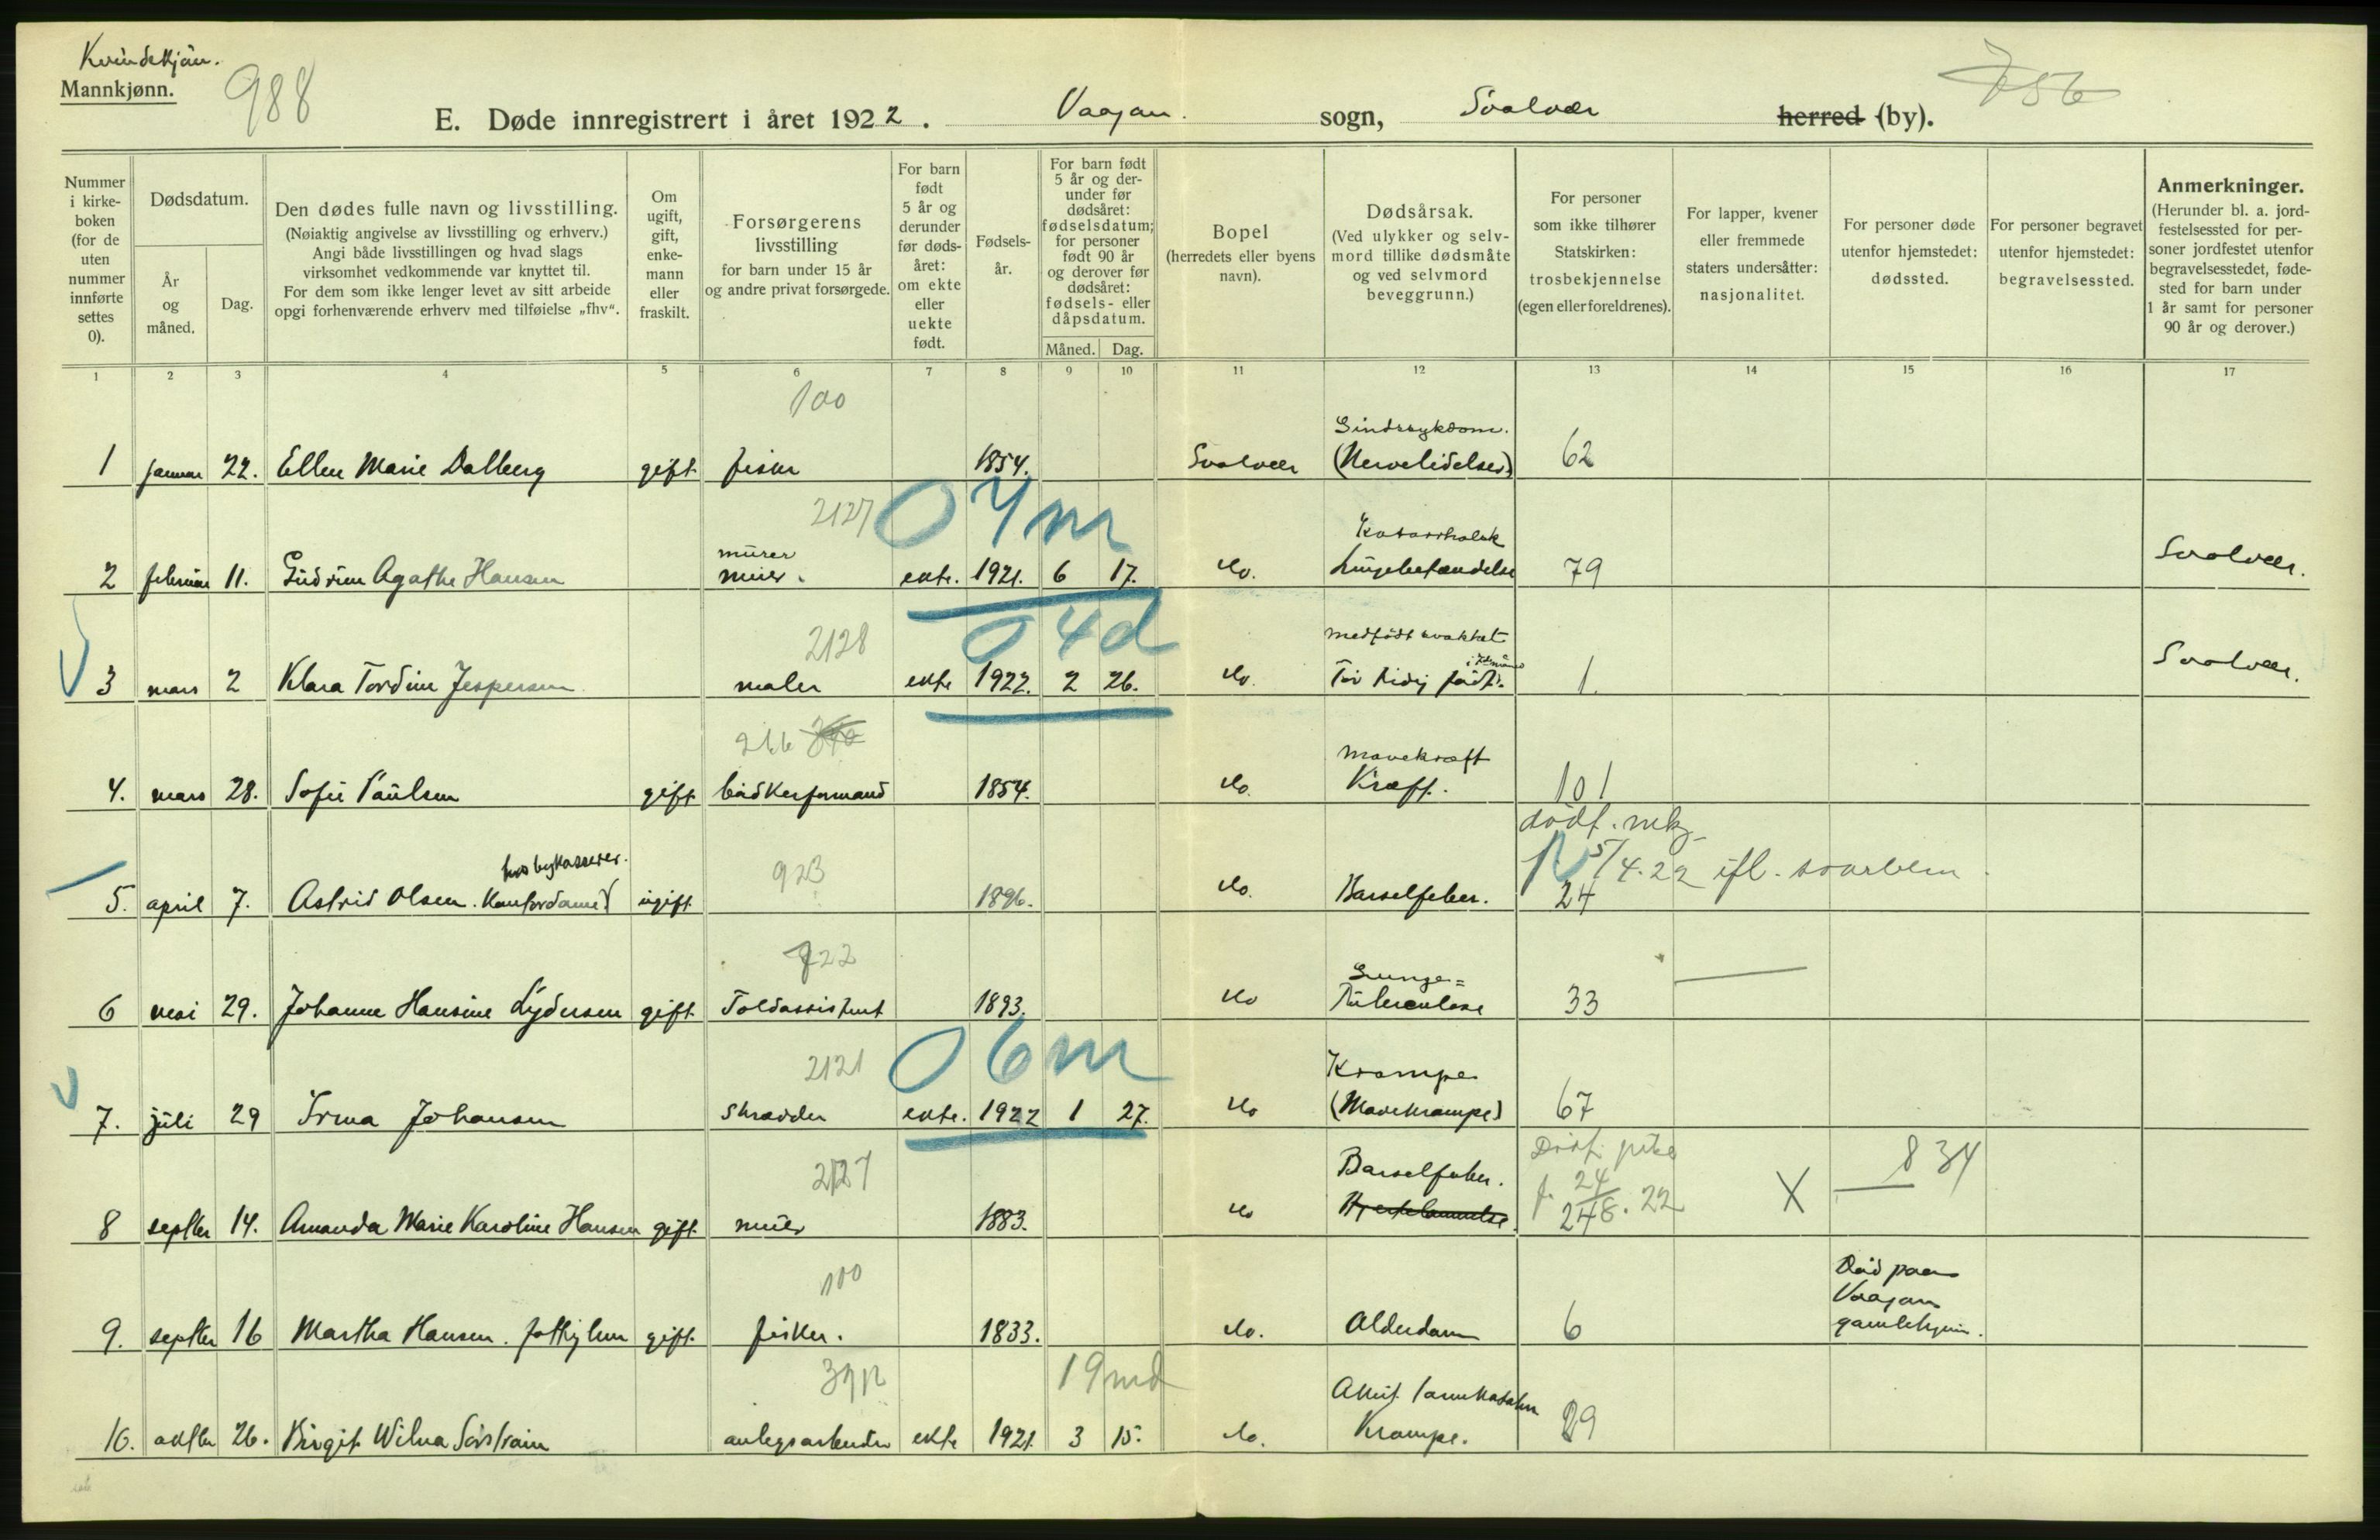 Kvindekjön.
Mannkjønn.
988
756
E. Døde innregistrert i året 1922. Vaagan. sogn, Svolvær herred (by).
Nummer i kirkeboken (for de uten nummer innførte settes 0).
Dødsdatum.
År og måned.
Dag.
Den dødes fulle navn og livsstilling.
(Nøiaktig angivelse av livsstilling og erhverv.)
Angi både livsstillingen og hvad slags
virksomhet vedkommende var knyttet til.
For dem som ikke lenger levet av sitt arbeide
opgi forhenværende erhverv med tilføielse „fhv“.
Om ugift, gift, enkemann eller fraskilt.
Forsørgerens livsstilling
for barn under 15 år
og andre privat forsørgede.
For barn født 5 år og derunder før dødsåret: om ekte eller uekte født.
Fødselsår.
For barn født 5 år og derunder før dødsåret: fødselsdatum; for personer født 90 år og derover før dødsåret: fødsels- eller dåpsdatum.
Måned. Dag.
Bopel
(herredets eller byens navn).
Dødsårsak.
(Ved ulykker og selvmord tillike dødsmåte og ved selvmord beveggrunn.)
For personer som ikke tilhører Statskirken: trosbekjennelse (egen eller foreldrenes).
For lapper, kvener eller fremmede staters undersåtter: nasjonalitet.
For personer døde utenfor hjemstedet: dødssted.
For personer begravet utenfor hjemstedet: begravelsessted.
Anmerkninger.
(Herunder bl. a. jordfestelsessted for personer jordfestet utenfor begravelsesstedet, fødested for barn under 1 år samt for personer 90 år og derover.)
1 2 3 4 5 6 7 8 9 10 11 12 13 14 15 16 17
100
Sindssykdom.
1 januar 22. Ellen Marie Dalberg gift fisker 1854. Svolvær (Nervelidelser) 62
2127 0 7m
murer Katarrhalsk
2 februar 11. Gudrun Agathe Hansen murer. ekte. 1921. 6 17. do. Lungebetændelse 79 Svolvær.
2128 0 4d
medfödt svakhet
3 mars 2 Klara Tordine Jespersen maler ekte 1922. 2 26. do. For tidlig födt. 1. Svolvær.
266
Mavekræft
4. mars 28. Sofie Paulsen gift bödkerformand 1854. do. Kræft. 101
dödf. mk.
hos bykasserer. 923 5/4.22 ifl. svarblem
5. april 7. Astrid Olsen. Kontordame ugift 1896. do. Barselfeber. 24
922
Lunge=
6 mai 29. Johanne Hansine Lydersen gift Toldassistent 1893. do Tuberculose 33
2121 0 6m
Krampe
7. juli 29 Irma Johansen skrædder ekte. 1922 1 27. do (Mavekrampe) 67
2127 Barselfeber. Dödf. pike 834
f. 24/8.22 X
8 septbr 14. Amanda Marie Karoline Hansen gift murer 1883. do Hjertelammelse. 24
100 Död paa
Vaagan
9. septbr 16 Martha Hansen. fattiglem gift. fisker. 1833. do. Alderdom 6 gamlehjem.
19 md
Akut tarmkatarrh
10. oktbr 26. Birgit Wilma anlegsarbeider ekte 1921. 3 15. do. Krampe. 89